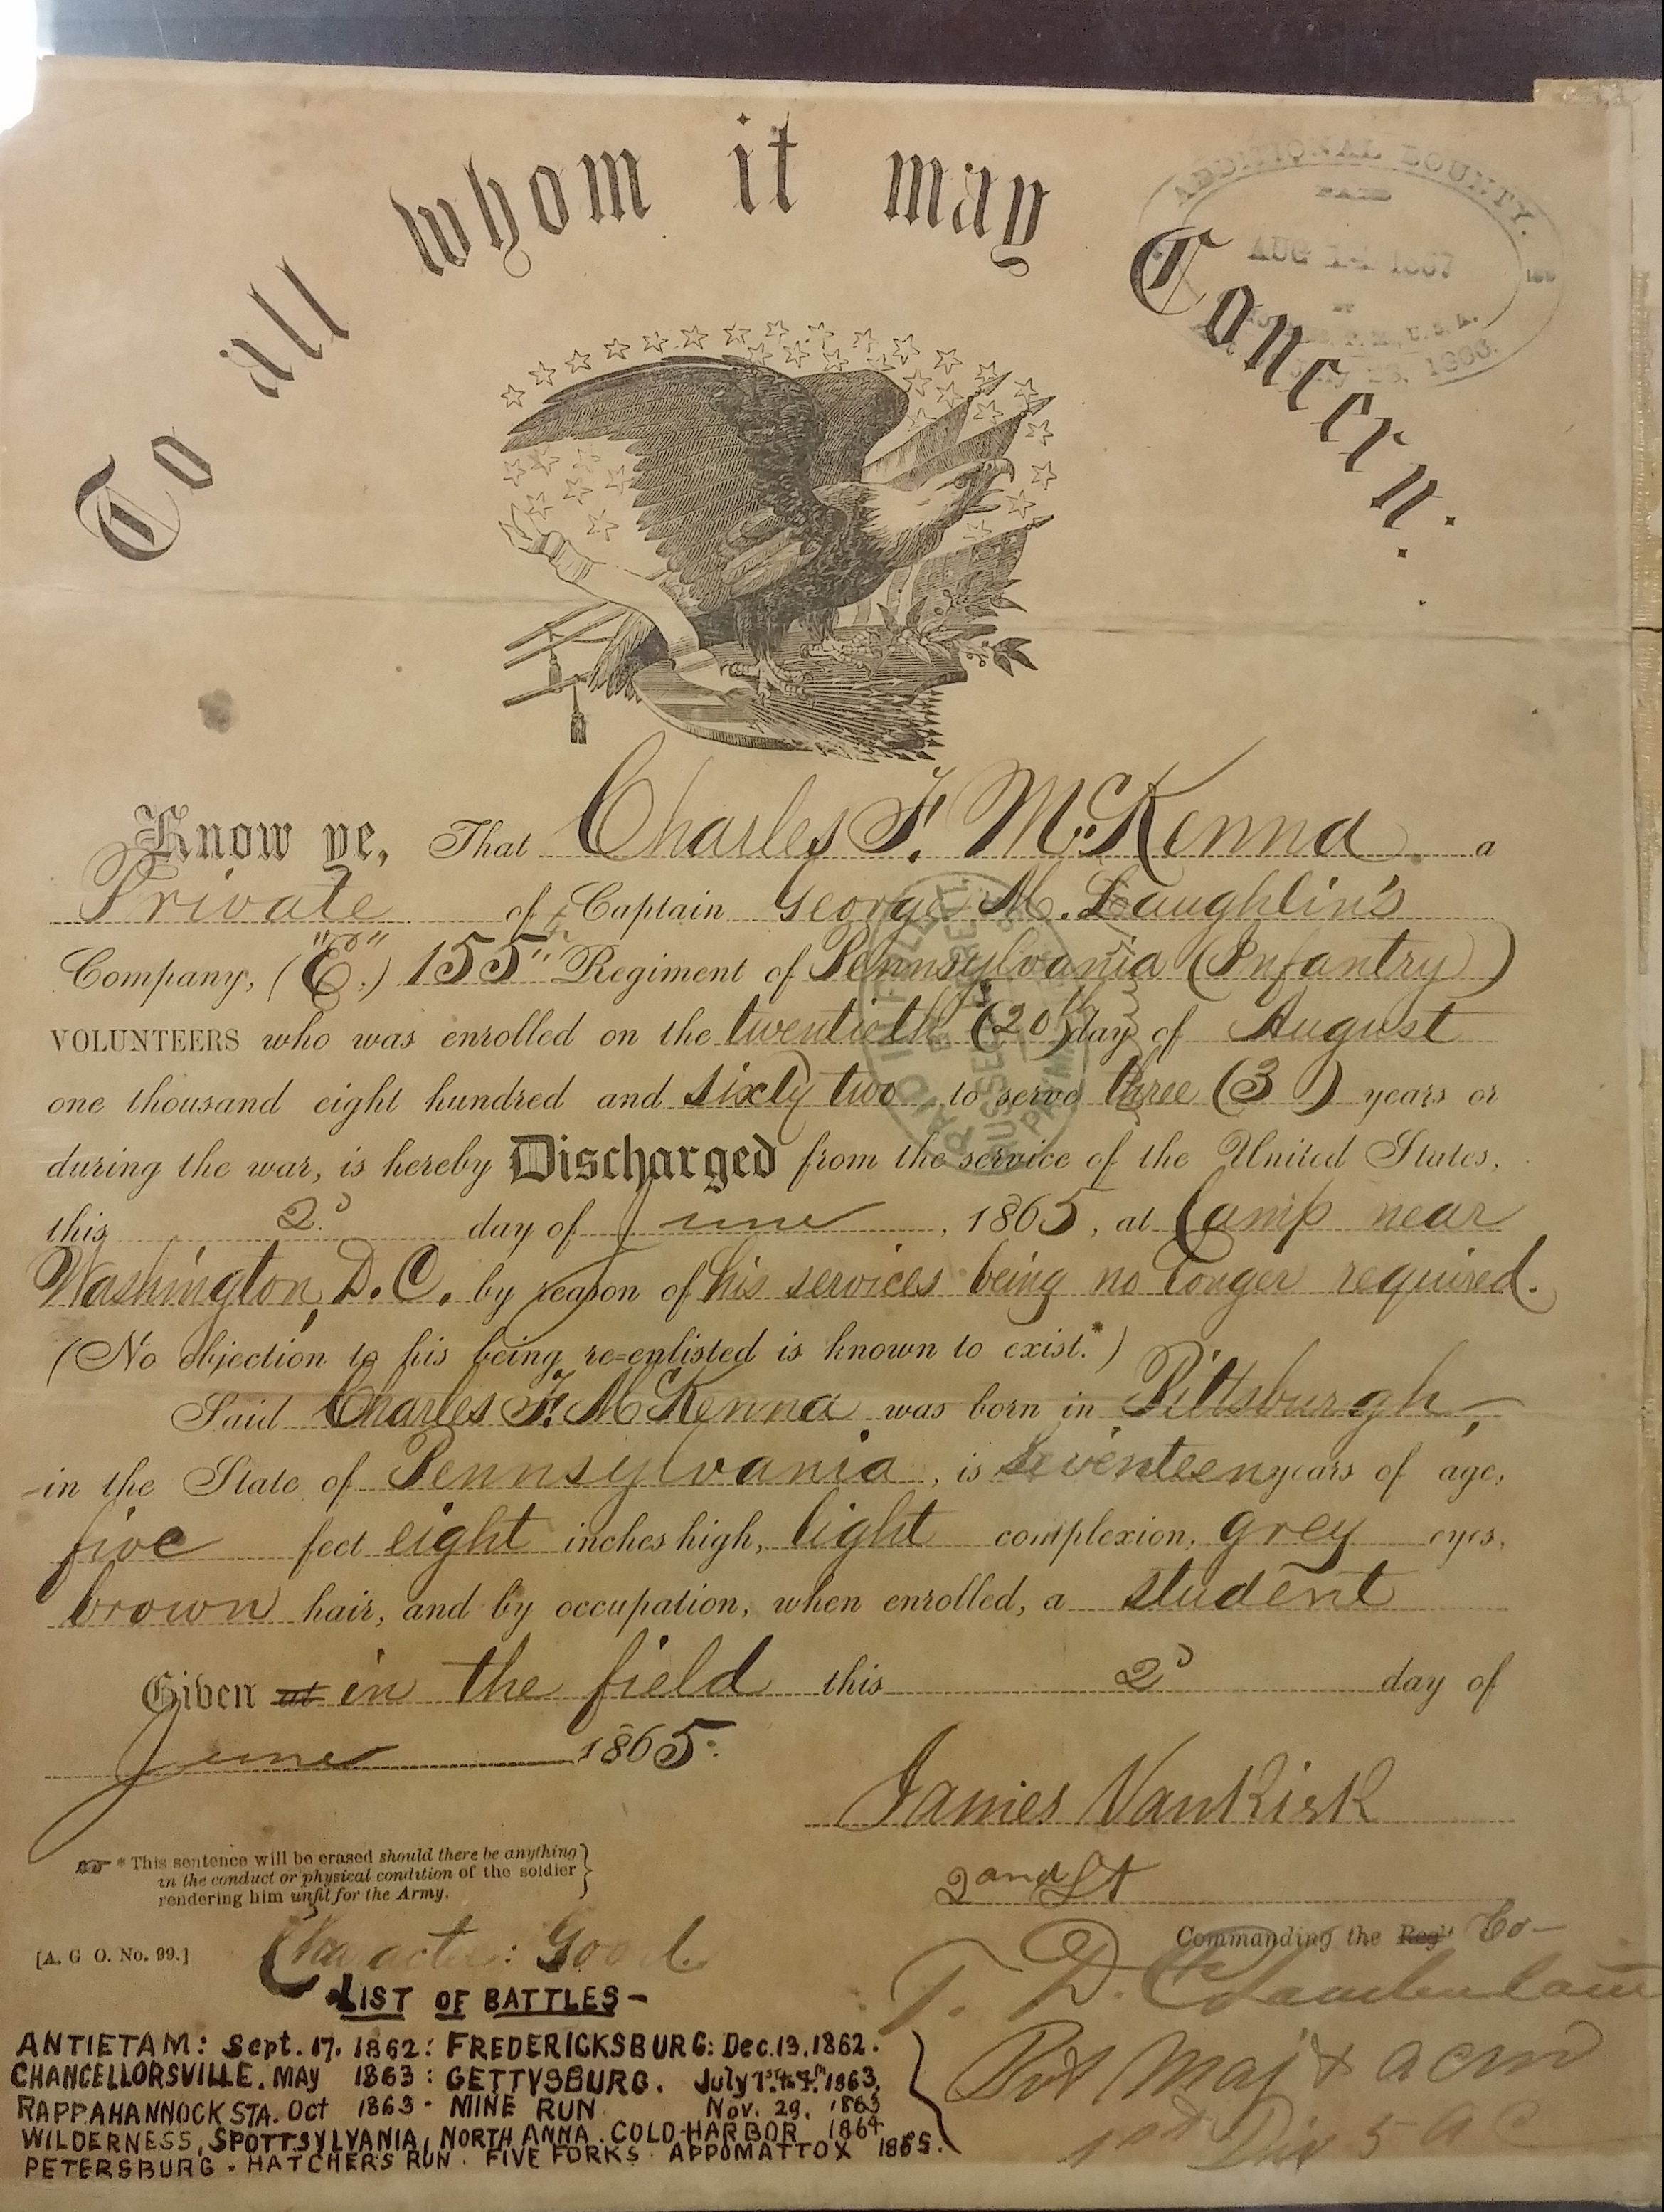 To all whom it may Concern.
ADDITIONAL BOUNTY.
PAID
AUG 14 1867
BY
P. M., U. S. A.
July 28, 1866.
Know ye, That Charles F. McKenna, a
Private of Captain George M. Laughlin's
Company, ("E".) 155th Regiment of Pennsylvania (Infantry)
VOLUNTEERS who was enrolled on the twentieth (20th) day of August
one thousand eight hundred and sixty two to serve three (3) years or
during the war, is hereby Discharged from the service of the United States,
this 2d day of June, 1865, at Camp near
Washington, D.C. by reason of his services being no longer required.
(No objection to his being re-enlisted is known to exist.*)
Said Charles F. McKenna was born in Pittsburgh,
in the State of Pennsylvania, is seventeen years of age,
five feet eight inches high, light complexion, grey eyes,
brown hair, and by occupation, when enrolled, a student
Given at in the field this 2d day of
June 1865.
James VanKirk
2and Lt
Commanding the Reg't Co
* This sentence will be erased should there be anything
in the conduct or physical condition of the soldier
rendering him unfit for the Army.
[A. G O. No. 99.]
Character: Good.
T. D. Chamberlain
Bvt Maj & acm
1st Div 5 A C
LIST OF BATTLES-
ANTIETAM: Sept. 17. 1862: FREDERICKSBURG: Dec. 13. 1862.
CHANCELLORSVILLE. MAY 1863: GETTYSBURG. July 1st to 4th 1863.
RAPPAHANNOCK STA. Oct 1863 - MINE RUN Nov. 29. 1863
WILDERNESS, SPOTTSYLVANIA, NORTH ANNA. COLD-HARBOR 1864
PETERSBURG - HATCHERS RUN. FIVE FORKS. APPOMATTOX 1865.